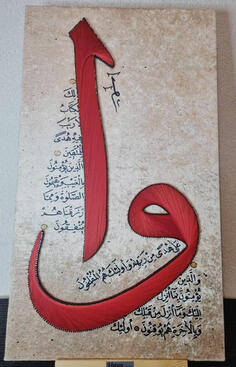 ا
و
ذلك
الكتاب
لا ريب
فيه هدى
للمتقين
الذين يؤمنون
بالغيب ويقيمون
الصلوة ومما
رزقناهم
ينفقون
والذين
يؤمنون بما أنزل
إليك وما أنزل من قبلك
وبالآخرة هم يوقنون أولئك
على هدى من ربهم وأولئك هم المفلحون